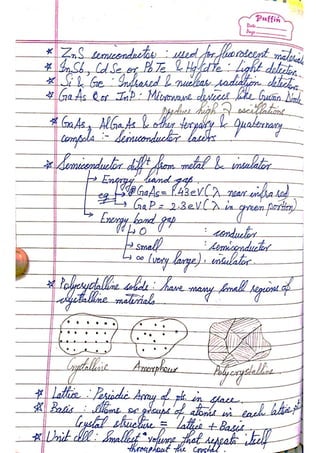 Puffin
Date
Page
* ZnS semiconductor : used for fluoroscent materials
* InSb, CdSe or PbTe & HgCdTe : light detector
* Si & Ge : Infrared & nuclear radiation detector
* GaAs or InP : Microwave devices like Gunn Diode
produce high oscillations
* GaAs, AlGaAs & other ternary & quaternary
compds :- Semiconductor lasers
* Semiconductor diff^t from metal & insulator
→ Energy band gap
eg → GaAs = 1.43eV (λ near infrared
→ GaP = 2.3eV (λ in green portion)
→ Energy band gap
→ 0 : conductor
→ small : semiconductor
→ ∞ (very large) : insulator
* Polycrystalline solids : have many small regions of
crystalline materials
Crystalline Amorphous Polycrystalline
* Lattice : Periodic Array of pts in space.
* Basis : Atoms or groups of atoms in each lattice pt
Crystal structure = lattice + Basis
* Unit cell : Smallest volume that repeats itself
throughout the crystal